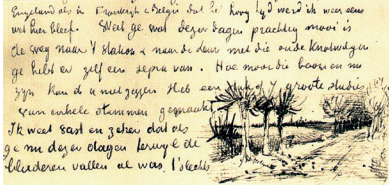 Engeland als in Frankrijk & België dat 't hoog tijd werd ik weer eens
uit hier bleef. Weet ge wat dezer dagen prachtig mooi is
de weg naar 't station & naar de leur met die oude knotwilgen
ge hebt er zelf een sepia van. Hoe mooi die boomen nu
zijn kan ik u niet zeggen Heb een groote studies
van enkele stammen gemaakt
Ik weet vast en zeker dat als
ge nu dezer dagen terwijl de
bladeren vallen al was 't slechts